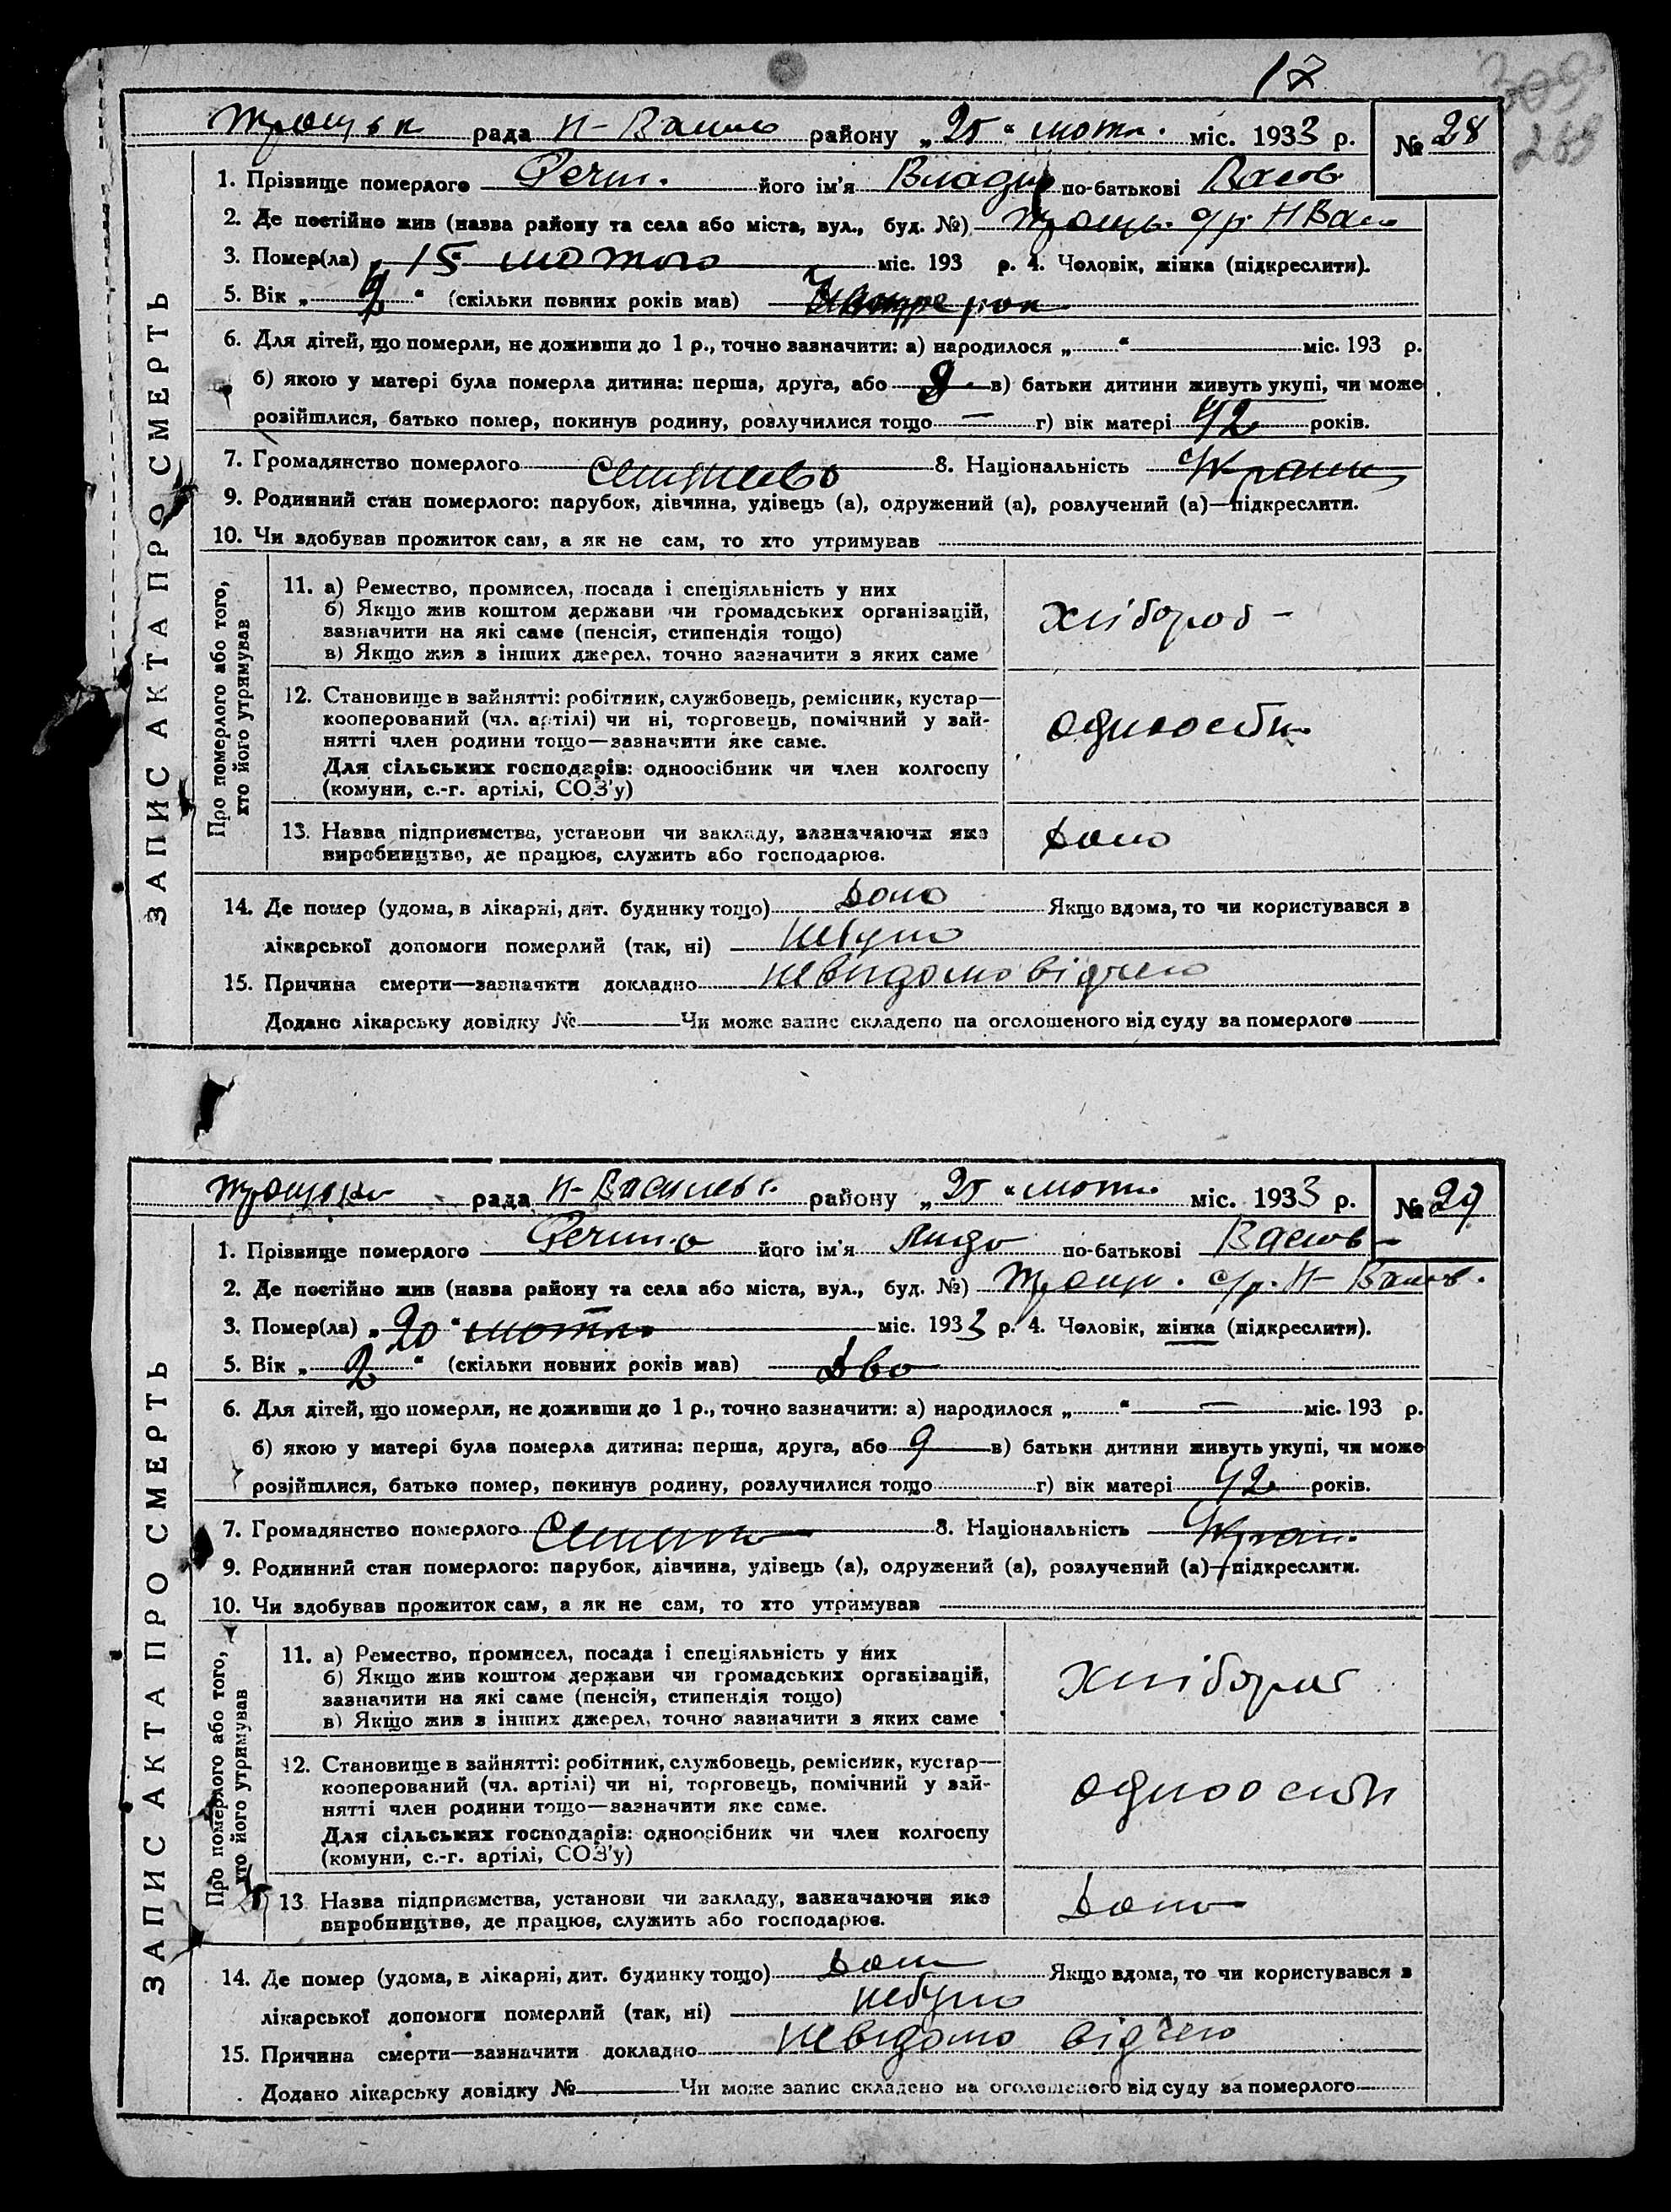 17
309
269
рада Н- района „25“ лютн. міс. 1933 р. № 28
1. Прізвище померлого його ім'я Влади по-батькові Васов
2. Де постійно жив (назва району та села або міста, вул., буд. №) Трощ. с/р. Н Вас
3. Помер(ла) „15“ лютого міс. 193 р. 4. Чоловік, жінка (підкреслити).
5. Вік „4“ (скільки повних років мав) рок
6. Для дітей, що померли, не доживши до 1 р., точно зазначити: а) народилося „ “ міс. 193 р.
б) якою у матері була померла дитина: перша, друга, або в) батьки дитини живуть укупі, чи може
розійшлися, батько помер, покинув родину, розлучилися тощо — г) вік матері 42 років.
7. Громадянство померлого 8. Національність Україн
9. Родинний стан померлого: парубок, дівчина, удівець (а), одружений (а), розлучений (а)—підкреслити.
10. Чи здобував прожиток сам, а як не сам, то хто утримував
11. а) Ремество, промисел, посада і спеціяльність у них
б) Якщо жив коштом держави чи громадських організацій,
зазначити на які саме (пенсія, стипендія тощо)
в) Якщо жив з інших джерел, точно зазначити з яких саме
хлібороб -
12. Становище в зайнятті: робітник, службовець, ремісник, кустар—
кооперований (чл. артілі) чи ні, торговець, помічний у зай-
нятті член родини тощо—зазначити яке саме.
Для сільських господарів: одноосібник чи член колгоспу
(комуни, с.-г. артілі, СОЗ'у)
одноосібн.
13. Назва підприємства, установи чи закладу, зазначаючи яке
виробництво, де працює, служить або господарює.
дома
14. Де помер (удома, в лікарні, дит. будинку тощо) дома Якщо вдома, то чи користувався в
лікарської допомоги померлий (так, ні) небуло
15. Причина смерти—зазначити докладно невидомо відчего
Додано лікарську довідку № Чи може запис складено на оголошеного від суду за померлого
Про померлого або того,
хто його утримував
ЗАПИС АКТА ПРО СМЕРТЬ
рада Н- Василевк. району „25“ лютн. міс. 1933 р. № 29
1. Прізвище померлого його ім'я Лида по-батькові Васов
2. Де постійно жив (назва району та села або міста, вул., буд. №) Трощ. с/р. Н- Васив.
3. Помер(ла) „20“ лютн. міс. 1933 р. 4. Чоловік, жінка (підкреслити).
5. Вік „2“ (скільки повних років мав) два
6. Для дітей, що померли, не доживши до 1 р., точно зазначити: а) народилося „ “ — міс. 193 р.
б) якою у матері була померла дитина: перша, друга, або 9 в) батьки дитини живуть укупі, чи може
розійшлися, батько помер, покинув родину, розлучилися тощо г) вік матері 42 років.
7. Громадянство померлого 8. Національність Україн.
9. Родинний стан померлого: парубок, дівчина, удівець (а), одружений (а), розлучений (а)—підкреслити.
10. Чи здобував прожиток сам, а як не сам, то хто утримував
11. а) Ремество, промисел, посада і спеціяльність у них
б) Якщо жив коштом держави чи громадських організацій,
зазначити на які саме (пенсія, стипендія тощо)
в) Якщо жив з інших джерел, точно зазначити з яких саме
хлібороб
12. Становище в зайнятті: робітник, службовець, ремісник, кустар—
кооперований (чл. артілі) чи ні, торговець, помічний у зай-
нятті член родини тощо—зазначити яке саме.
Для сільських господарів: одноосібник чи член колгоспу
(комуни, с.-г. артілі, СОЗ'у)
одноосібн
13. Назва підприємства, установи чи закладу, зазначаючи яке
виробництво, де працює, служить або господарює.
дома
14. Де помер (удома, в лікарні, дит. будинку тощо) дома Якщо вдома, то чи користувався в
лікарської допомоги померлий (так, ні) небуло
15. Причина смерти—зазначити докладно невидомо відчего
Додано лікарську довідку № Чи може запис складено на оголошеного від суду за померлого
Про померлого або того,
хто його утримував
ЗАПИС АКТА ПРО СМЕРТЬ